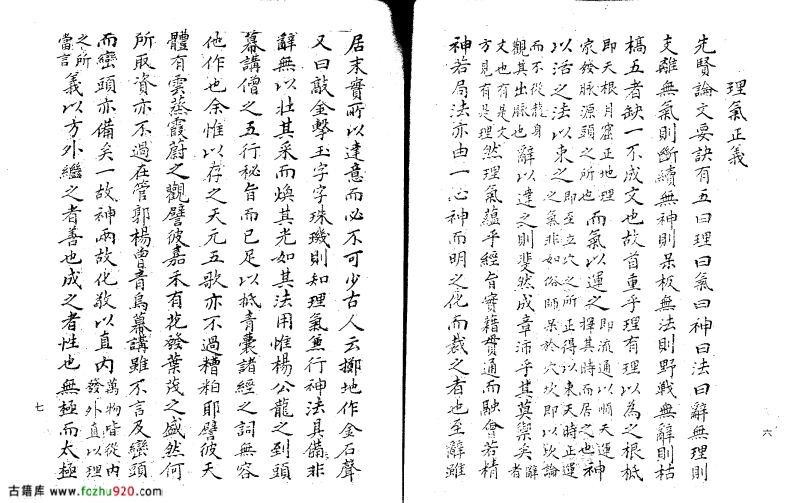 理氣正義
先賢論文要訣有五曰理曰氣曰神曰法曰辭無理則
支離無氣則斷續無神則呆板無法則野戰無辭則枯
槁五者缺一不成文也故首重乎理有理以為之根柢
即天根月窟正地理家發脉源頭之所也而氣以運之即流通以順天運擇其時而居之也神
以活之法以束之即至立穴之所正得以來天時正運之氣非如俗師呆於穴坎即以坎論
而不從龍身觀其出脉也辭以達之則斐然成章沛乎其莫禦矣辭者
文也有是文方見有是理然理氣蘊乎經旨實藉貫通而融會若精
神若局法亦由一心神而明之化而裁之者也至辭雖
六
居末實所以達意而必不可少古人云擲地作金石聲
又曰敲金擊玉字字珠璣則知理氣兼行神法具備非
辭無以壯其采而煥其光如其法用惟楊公龍之到頭
幕講僧之五行秘旨而已足以抵青囊諸經之詞無容
他作也余惟以存之天元五歌亦不過糟粕耶譬彼天
體有雲蒸霞蔚之觀譬彼嘉禾有花發葉茂之盛然何
所取資亦不過在管郭楊曾青烏幕講雖不言及巒頭
而巒頭亦備矣一故神兩故化敬以直內萬物皆從內發外直以理
之所當言義以方外繼之者善也成之者性也無極而太極
七
古籍库 www.fozhu920.com